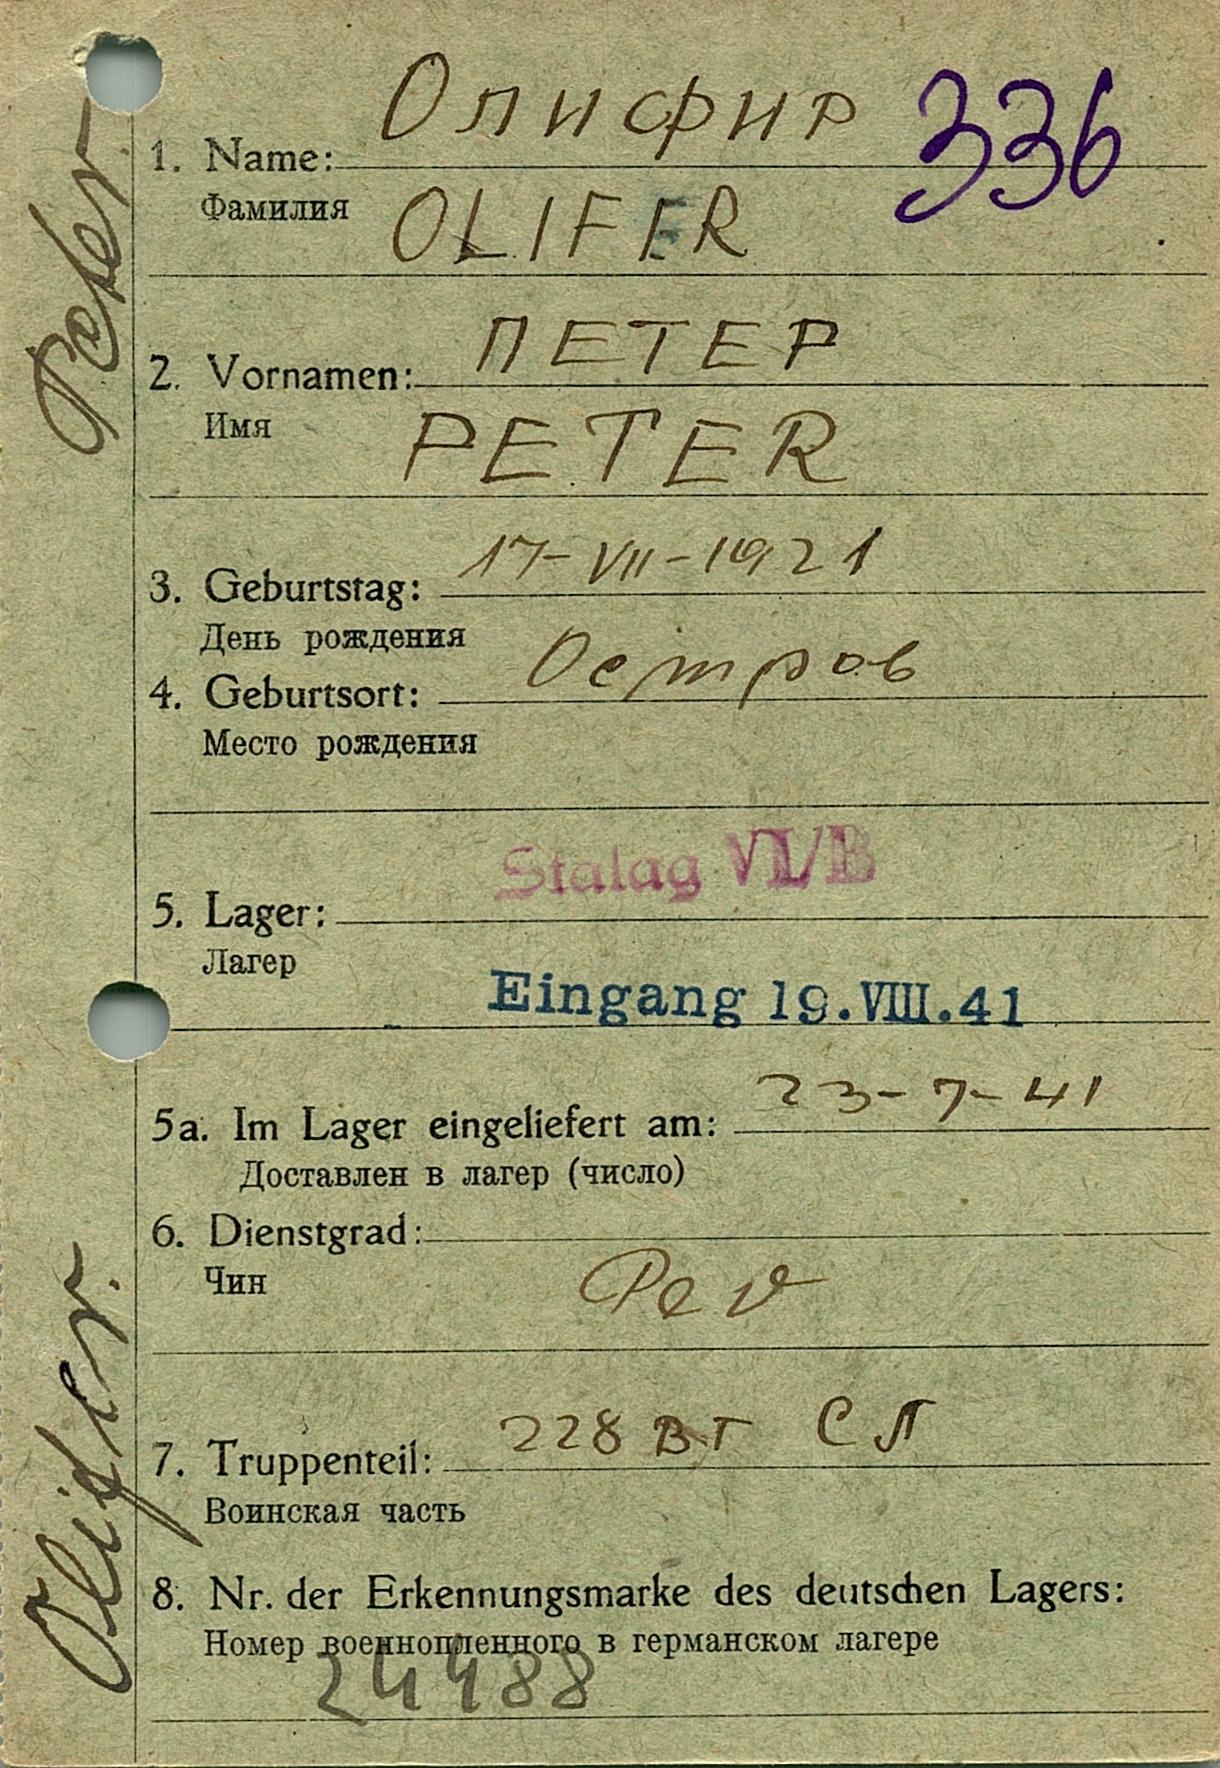 Олифир
336
1. Name:
Фамилия
OLIFER
ПЕТЕР
2. Vornamen:
Имя
PETER
17-VII-1921
3. Geburtstag:
День рождения
Остров
4. Geburtsort:
Место рождения
Stalag VI/B
5. Lager:
Лагер
Eingang 19.VIII.41
23-7-41
5a. Im Lager eingeliefert am:
Доставлен в лагер (число)
6. Dienstgrad:
Чин
228 СП
7. Truppenteil:
Воинская часть
8. Nr. der Erkennungsmarke des deutschen Lagers:
Номер военнопленного в германском лагере
24488
Olifer. Peter